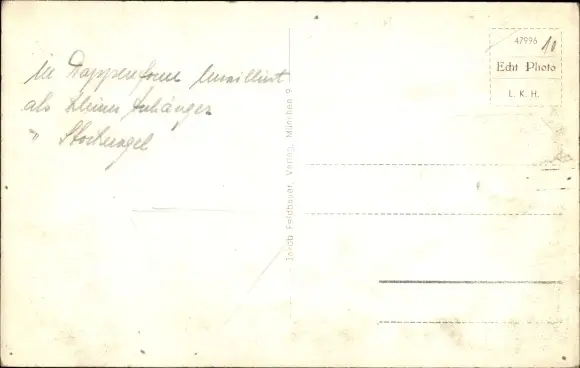 in Wappenform emailliert
als kleiner Anhänger
" Stocknagel
Jakob Feldbauer, Verlag, München 9
47996
10
Echt Photo
L. K. H.